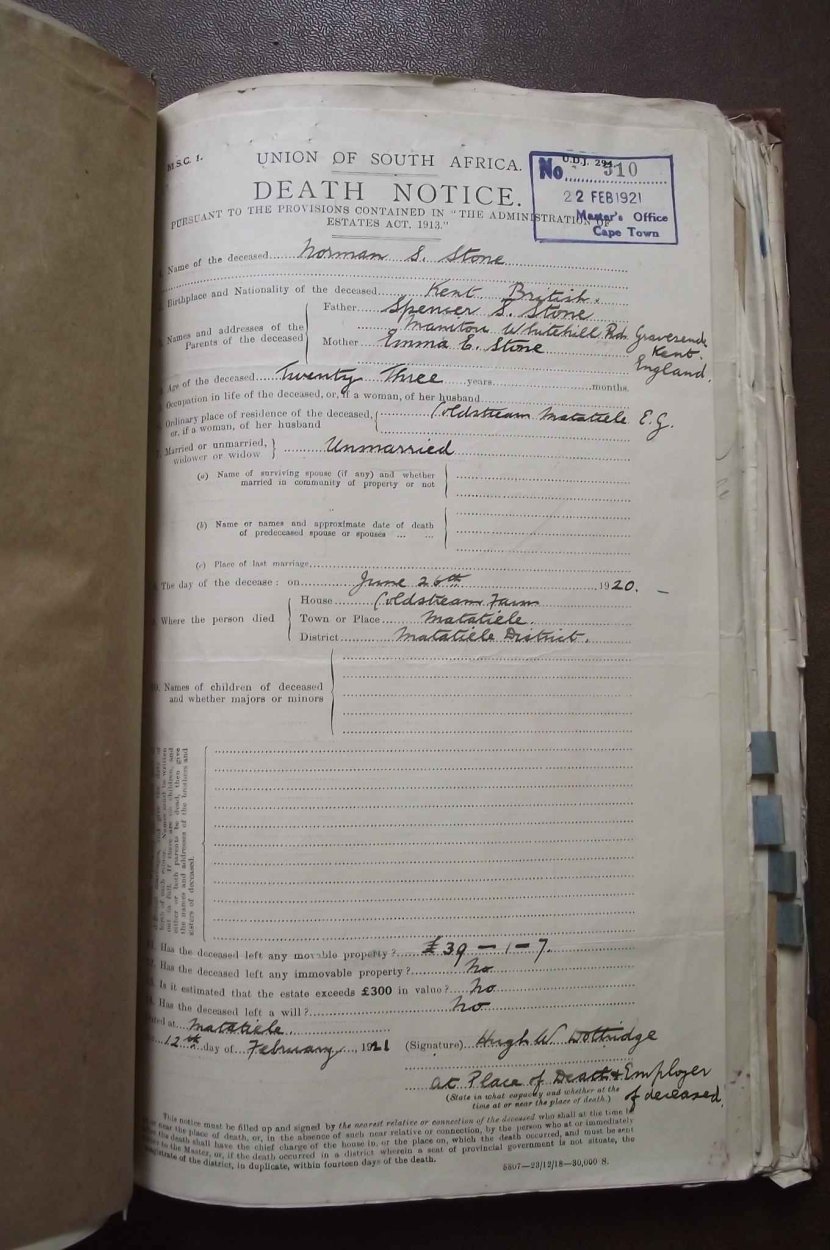 M.S.C. 1.
UNION OF SOUTH AFRICA.
DEATH NOTICE.
PURSUANT TO THE PROVISIONS CONTAINED IN "THE ADMINISTRATION OF
ESTATES ACT, 1913."
U.D.J. 294
No. 310
22 FEB 1921
Master's Office
Cape Town
Name of the deceased Norman S. Stone
Birthplace and Nationality of the deceased Kent British.
Names and addresses of the Parents of the deceased
Father Spencer S. Stone
Manitou Whitehill Rd. Gravesend
Kent.
England.
Mother Emma E. Stone
Age of the deceased Twenty Three years months.
Occupation in life of the deceased, or, if a woman, of her husband
Ordinary place of residence of the deceased, or, if a woman, of her husband
Coldstream Matatiele E.G.
Married or unmarried, widower or widow
Unmarried
(a) Name of surviving spouse (if any) and whether
married in community of property or not
(b) Name or names and approximate date of death
of predeceased spouse or spouses ... ...
(c) Place of last marriage
The day of the decease: on June 26th 1920.
Where the person died
House Coldstream Farm
Town or Place Matatiele.
District Matatiele District.
10. Names of children of deceased
and whether majors or minors
birth of each minor. Names must be written
out in full. If there are no children, and
either or both parents be dead, then give
the names and addresses of the brothers and
sisters of deceased.
11. Has the deceased left any movable property? £39-1-7.
Has the deceased left any immovable property? No
Is it estimated that the estate exceeds £300 in value? No
Has the deceased left a will? No
Dated at Matatiele.
12th day of February, 1921
(Signature) Hugh W. Dottridge
at Place of Death & Employer
of deceased.
(State in what capacity and whether at the
time at or near the place of death.)
This notice must be filled up and signed by the nearest relative or connection of the deceased who shall at the time be
at or near the place of death, or, in the absence of such near relative or connection, by the person who at or immediately
after the death shall have the chief charge of the house in, or the place on, which the death occurred, and must be sent
to the Master, or, if the death occurred in a district wherein a seat of provincial government is not situate, the
Magistrate of the district, in duplicate, within fourteen days of the death.
5807—23/12/18—30,000 S.